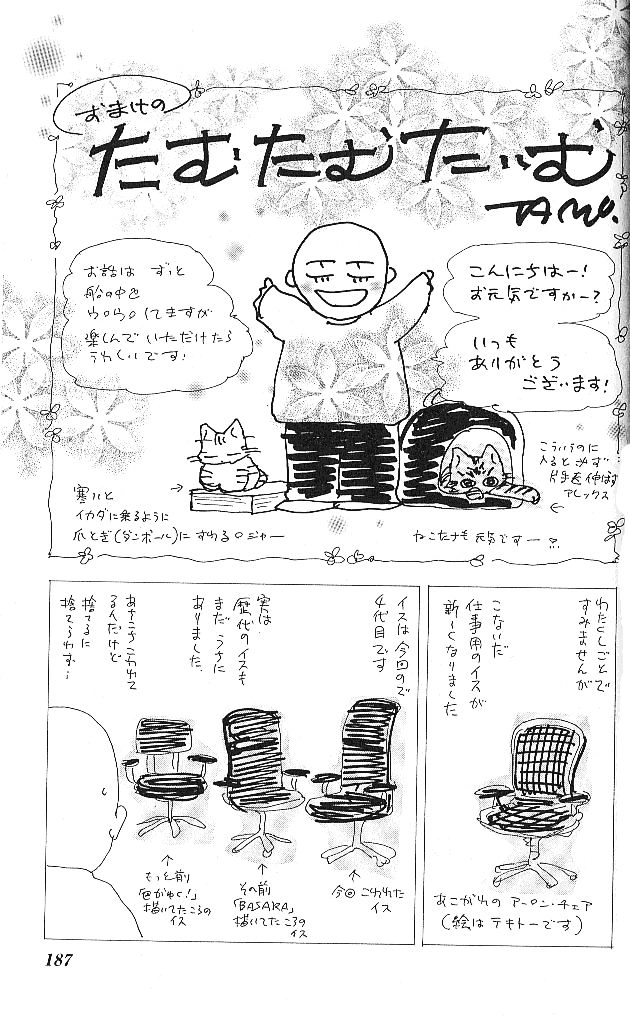 おまけの
たむたむたいむ
TAMU.
こんにちはー!
お元気ですかー?
いつも
ありがとう
ございます!
お話は ずっと
船の中を
ウロウロしてますが
楽しんでいただけたら
うれしいです!
寒いと
イカダに乗るように
爪とぎ(ダンボール)にすわるロジャー
こういうのに
入ると必ず
片手を伸ばす
アレックス
ねこたちも元気ですー
わたくしごとで
すみませんが
こないだ
仕事用のイスが
新しくなりました
あこがれの アーロン・チェア
(絵はテキトーです)
イスは今回ので
4代目です
実は
歴代のイスも
まだうちに
ありました
あちこちこわれて
るんだけど
捨てるに
捨てられず…
今回こわれた
イス
その前
「BASARA」
描いてたころの
イス
もっと前
描いてたころの
イス
187